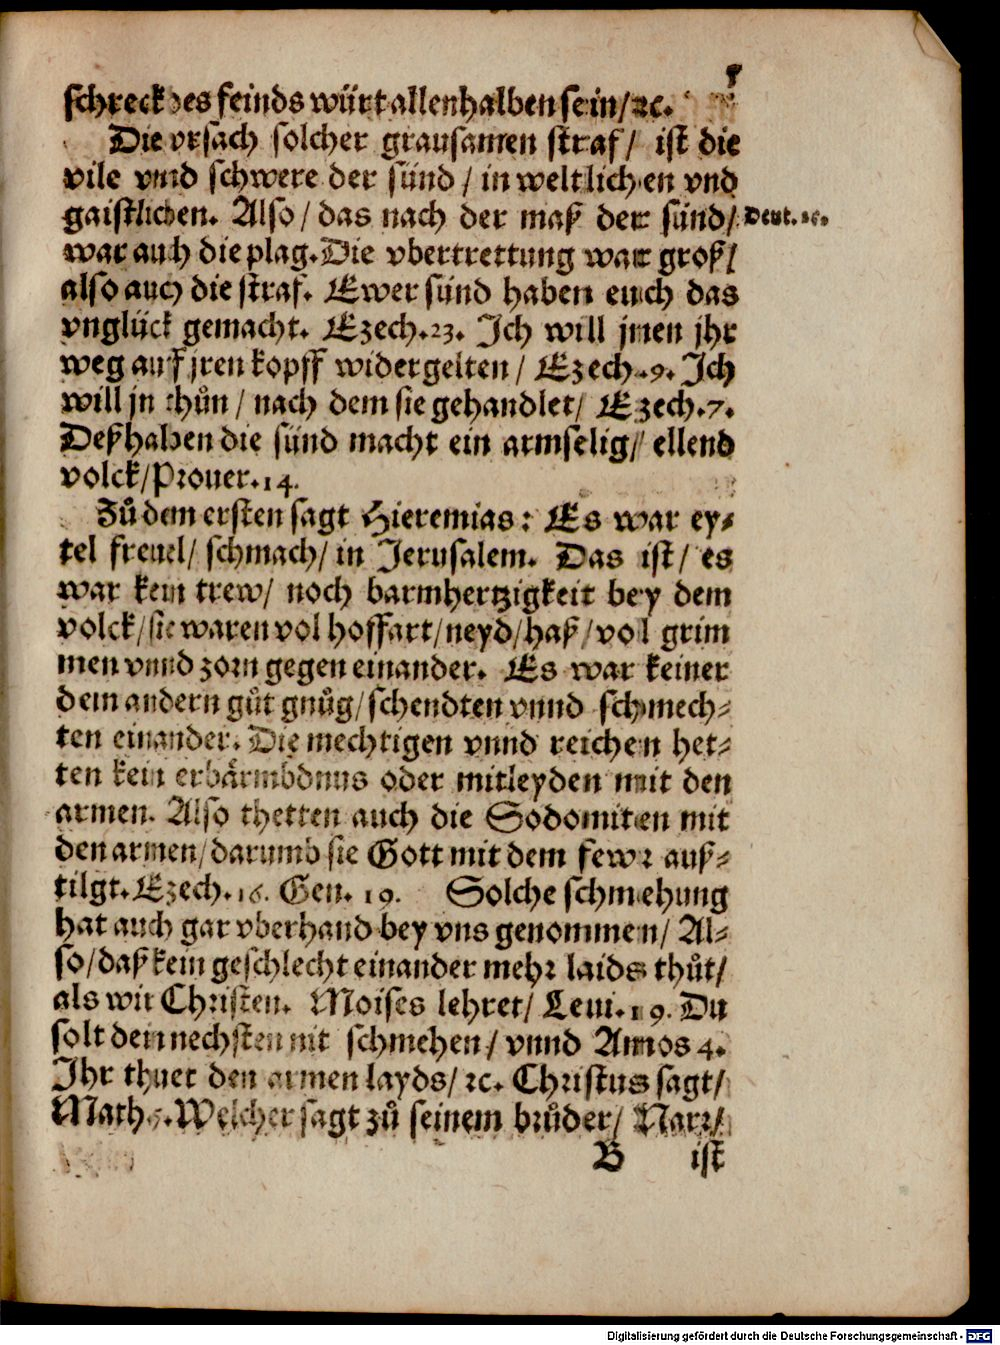 5
schreck des feinds würt allenhalben sein/ ꝛc.
Die vrsach solcher grausamen straf/ ist die
vile vnnd schwere der sünd / in weltlichen vnd
gaistlichen. Also / das nach der maß der sünd/ Deut.
war auch die plag. Die vbertrettung war groß/
also auch die straf. Ewer sünd haben euch das
vnglück gemacht. Ezech. 23. Ich will jnen jhr
weg auff jren kopff widergelten / Ezech. 9. Ich
will jn thůn / nach dem sie gehandlet/ Ezech. 7.
Deßhalben die sünd macht ein armselig/ ellend
volck/ Prouer. 14.
Zů dem ersten sagt Hieremias: Es war ey⸗
tel freuel/ schmach/ in Jerusalem. Das ist/ es
war kein trew/ noch barmhertzigkeit bey dem
volck/ sie waren vol hoffart/ neyd/ haß/ vol grim
men vnnd zorn gegen einander. Es war keiner
dem andern gůt gnůg/ schendten vnnd schmech⸗
ten einander. Die mechtigen vnnd reichen het⸗
ten kein erbärmbdnus oder mitleyden mit den
armen. Also thetten auch die Sodomiten mit
den armen/ darumb sie Gott mit dem fewr auß⸗
tilgt. Ezech. 16. Gen. 19. Solche schmehung
hat auch gar vberhand bey vns genommen/ Al⸗
so/ daß kein geschlecht einander mehr laids thůt/
als wir Christen. Moises lehret/ Leui. 19. Du
solt dein nechsten nit schmehen / vnnd Amos 4.
Ihr thuet den armen layds/ ꝛc. Christus sagt/
Math. 5. Welcher sagt zů seinem brůder/ Narr/
B ist
Digitalisierung gefördert durch die Deutsche Forschungsgemeinschaft - DFG